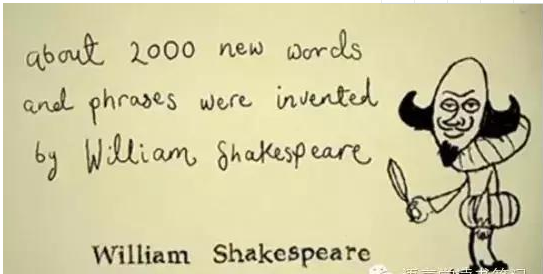 about 2000 new words
and phrases were invented
by William Shakespeare
William Shakespeare